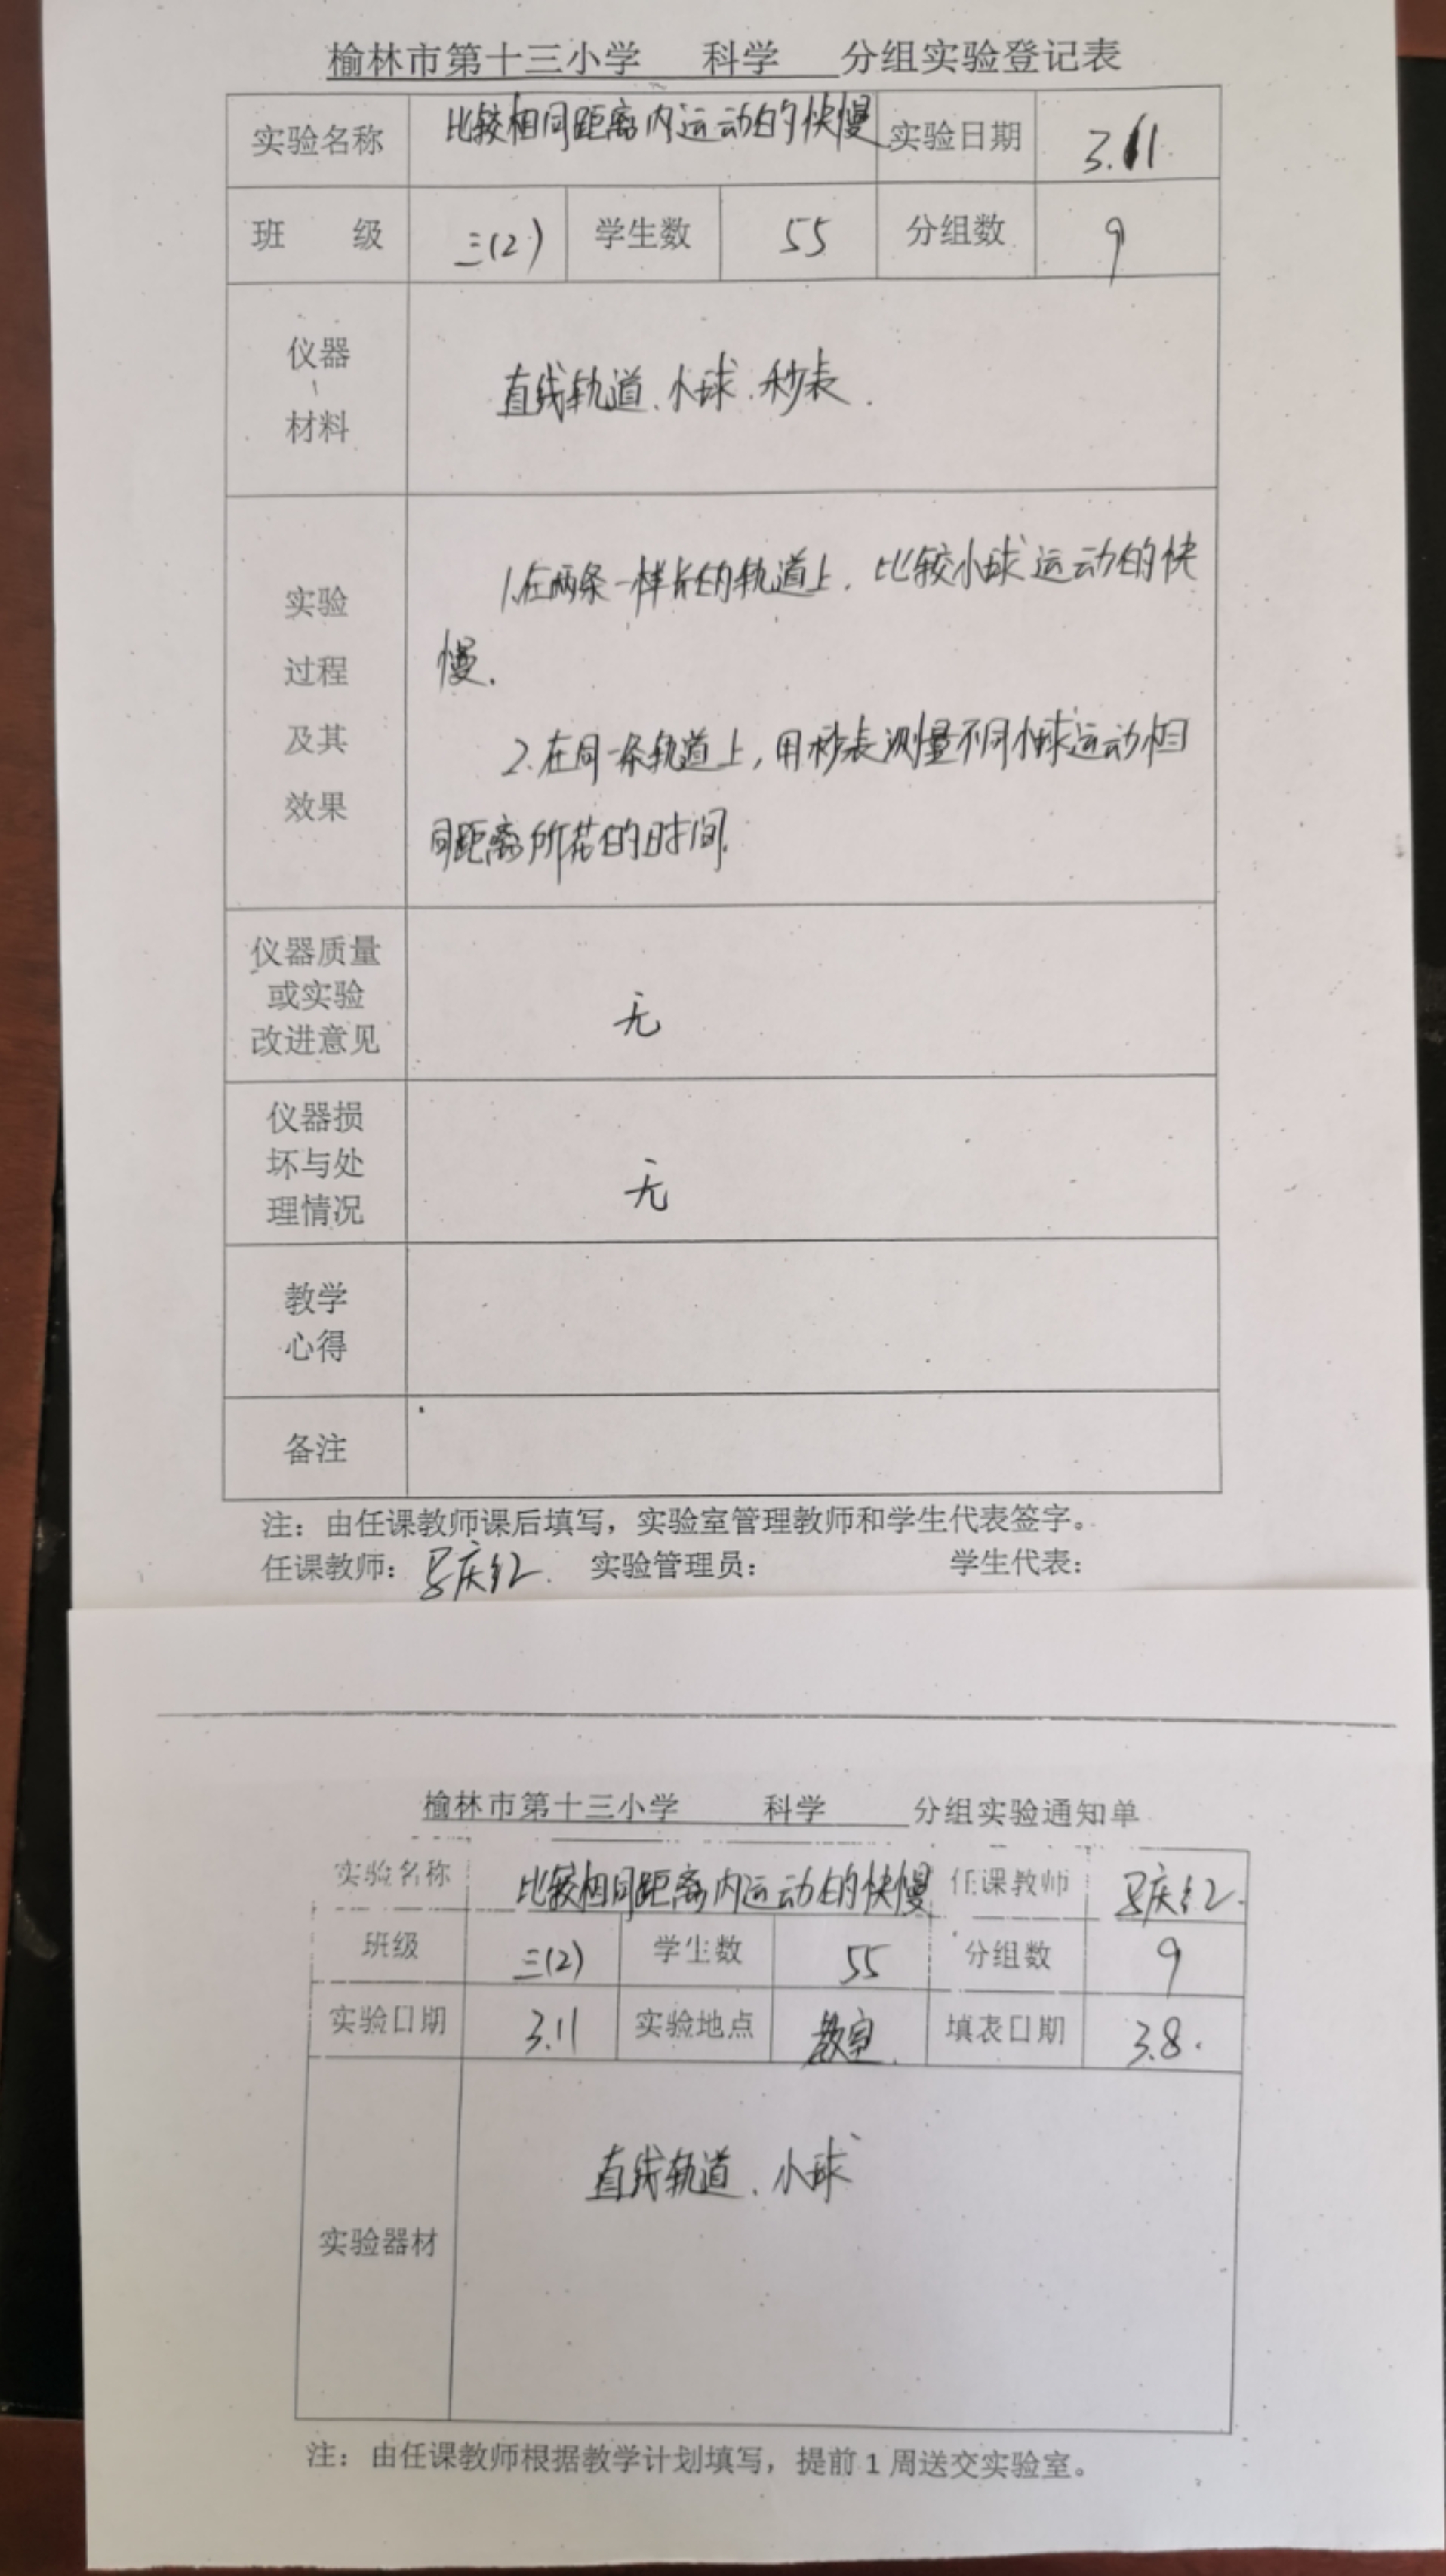 榆林市第十三小学 科学 分组实验登记表
实验名称 比较相同距离内运动的快慢 实验日期 3.11
班 级 三(2) 学生数 55 分组数 9
仪器
、
材料
直线轨道、小球、秒表.
实验
过程
及其
效果
1.在两条一样长的轨道上,比较小球运动的快
慢.
2.在同一条轨道上,用秒表测量不同小球运动相
同距离所花的时间.
仪器质量
或实验
改进意见
无
仪器损
坏与处
理情况
无
教学
心得
备注
注:由任课教师课后填写,实验室管理教师和学生代表签字。
任课教师: 庆红. 实验管理员: 学生代表:
榆林市第十三小学 科学 分组实验通知单
实验名称 比较相同距离内运动的快慢 任课教师 庆红.
班级 三(2) 学生数 55 分组数 9
实验日期 3.11 实验地点 教室. 填表日期 3.8.
实验器材 直线轨道、小球
注:由任课教师根据教学计划填写,提前1周送交实验室。